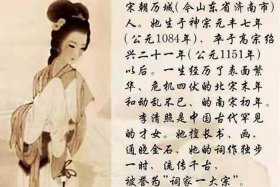 宋朝历城(今山东省济南市)
人。她生于神宗元丰七年
(公元1084年)，卒于高宗绍
兴二十一年(公元1151年)
以后。一生经历了表面繁
华、危机四伏的北宋末年
和动乱不已、的南宋初年。
李清照是中国古代罕见
的才女。她擅长书、画，
通晓金石，她的词作独步
一时，流传千古，
被誉为"词家一大宗"。